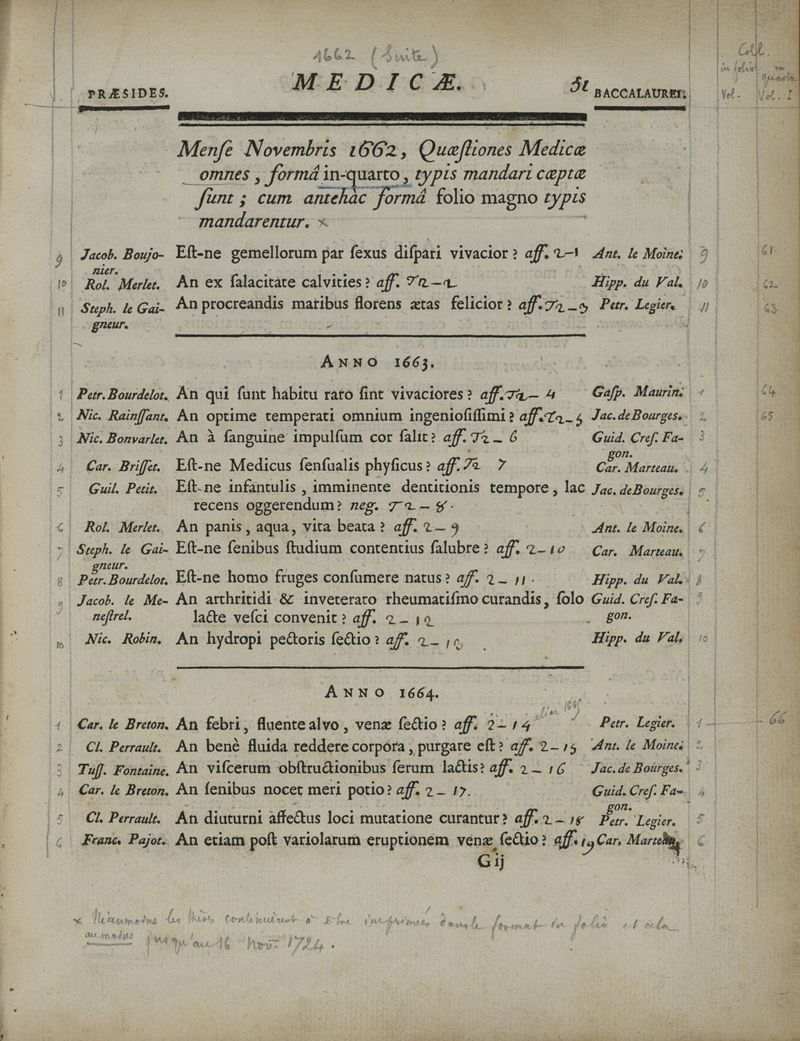 1662 (Suite)
Coll.
in folio in quarto
PRÆSIDES. MEDICÆ. 51 BACCALAUREI. Vol. Vol. I
Menſe Novembris 1662, Quæſtiones Medicæ
omnes, formâ in-quarto, typis mandari cæptæ
ſunt ; cum antehàc formâ folio magno typis
mandarentur. ×
9 Jacob. Boujo- Eſt-ne gemellorum par ſexus diſpari vivacior ? aff. 2-1 Ant. le Moine. 9 61
nier.
10 Rol. Merlet. An ex ſalacitate calvities ? aff. T2-2 Hipp. du Val. 10 62
11 Steph. le Gai- An procreandis maribus florens ætas felicior ? aff. T2-3 Petr. Legier. 11 63
gneur.
ANNO 1663.
1 Petr. Bourdelot. An qui ſunt habitu raro ſint vivaciores ? aff. T2-4 Gaſp. Maurin. 1 64
2 Nic. Rainſſant. An optime temperati omnium ingenioſiſſimi ? aff. T2-5 Jac. de Bourges. 2 65
3 Nic. Bonvarlet. An à ſanguine impulſum cor ſalit ? aff. T2-6 Guid. Creſ. Fa- 3
gon.
4 Car. Briſſet. Eſt-ne Medicus ſenſualis phyſicus ? aff. T2 7 Car. Marteau. 4
5 Guil. Petit. Eſt-ne infantulis, imminente dentitionis tempore, lac Jac. de Bourges. 5
recens oggerendum ? neg. T2-8.
6 Rol. Merlet. An panis, aqua, vita beata ? aff. 2-9 Ant. le Moine. 6
7 Steph. le Gai- Eſt-ne ſenibus ſtudium contentius ſalubre ? aff. 2-10 Car. Marteau. 7
gneur.
8 Petr. Bourdelot. Eſt-ne homo fruges conſumere natus ? aff. 2-11. Hipp. du Val. 8
9 Jacob. le Me- An arthritidi & inveterato rheumatiſmo curandis, ſolo Guid. Creſ. Fa- 9
neſtrel. lacte veſci convenit ? aff. 2-12 gon.
10 Nic. Robin. An hydropi pectoris ſectio ? aff. 2-13 Hipp. du Val. 10
ANNO 1664.
1 Car. le Breton. An febri, fluente alvo, venæ ſectio ? aff. 2-14 Petr. Legier. 1 66
2 Cl. Perrault. An benè fluida reddere corpora, purgare eſt ? aff. 2-15 Ant. le Moine. 2
3 Tuſſ. Fontaine. An viſcerum obſtructionibus ſerum lactis ? aff. 2-16 Jac. de Bourges. 3
4 Car. le Breton. An ſenibus nocet meri potio ? aff. 2-17. Guid. Creſ. Fa- 4
gon.
5 Cl. Perrault. An diuturni affectus loci mutatione curantur ? aff. 2-18 Petr. Legier. 5
6 Franc. Pajot. An etiam poſt variolarum eruptionem venæ ſectio ? aff. 19 Car. Marteau. 6
G ij
× Néanmoins les thèses continuèrent à être imprimées dans le format in folio et cela
au moins jusqu'au 16 Nov. 1724.